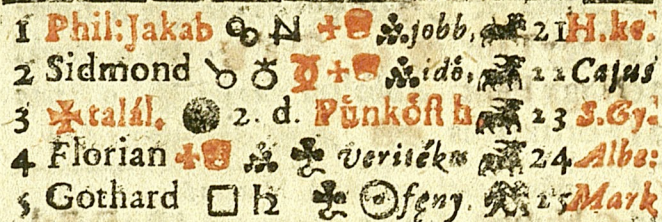 1 Phil: Jakab ☍ ♄ jobb, 21 H. ke.
2 Sidmond ☌ ♁ idő, 22 Cajus
3 ✠ talál. 2. d. Pünkőst h. 23 S. Gy.
4 Florian veriték 24 Albe:
5 Gothard □ ♃ ☉ fény. 25 Mark